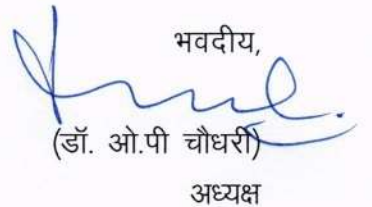 भवदीय,
(डॉ. ओ.पी चौधरी)
अध्यक्ष